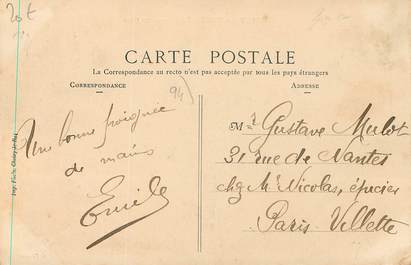 20t
CARTE POSTALE
La Correspondance au recto n'est pas acceptée par tous les pays étrangers
CORRESPONDANCE
ADRESSE
94
Une bonne poignée
de mains
Emile
Mr Gustave Mulot
31 rue de Nantes
chez Mr Nicolas, épicier
Paris Villette